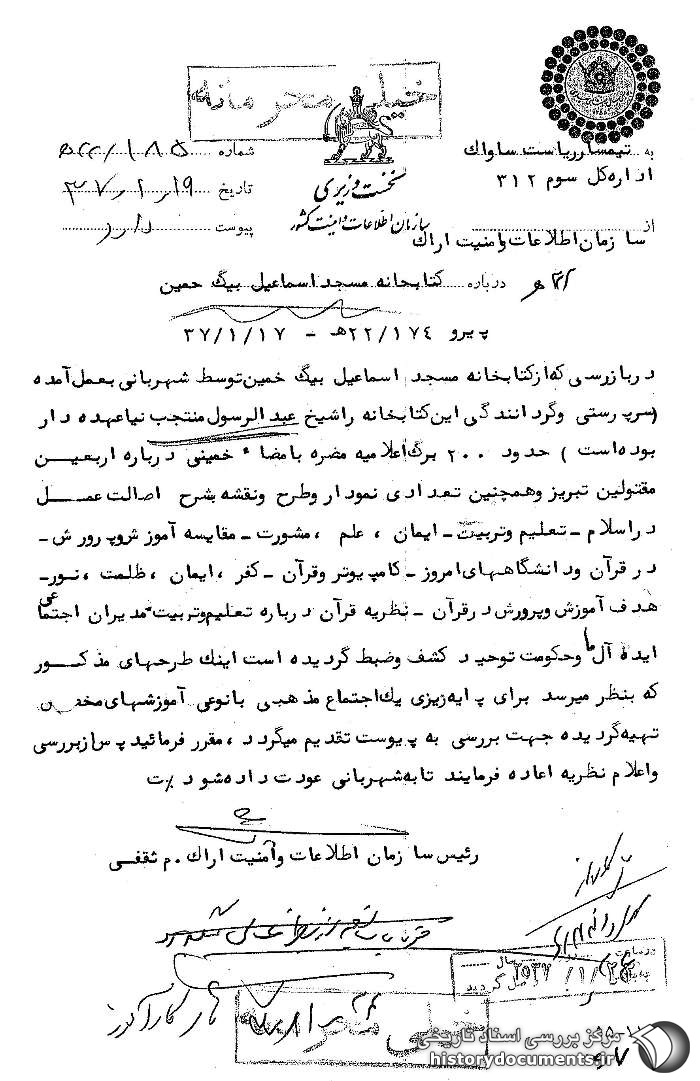 خیلی محرمانه
به تیمسار ریاست ساواک
اداره کل سوم ۳۱۲
از
سازمان اطلاعات وامنیت اراک
نخست وزیری
سازمان اطلاعات و امنیت کشور
شماره ۲۲/۱۸۵ه
تاریخ ۳۷/۱/۱۹
پیوست دارد
درباره کتابخانه مسجد اسماعیل بیگ خمین
پیرو ۲۲/۱۷۴ه‍ - ۳۷/۱/۱۷
دربازرسی که ازکتابخانه مسجد اسماعیل بیگ خمین توسط شهربانی بعمل آمده
(سرپرستی وگردانندگی این کتابخانه راشیخ عبدالرسول منتجب نیا عهده دار
بوده است) حدود ۲۰۰ برگ اعلامیه مضره بامضاء خمینی درباره اربعین
مقتولین تبریز وهمچنین تعدادی نمودار وطرح ونقشه بشرح اصالت عمل
دراسلام - تعلیم وتربیت - ایمان ، علم ، مشورت - مقایسه آموزش وپرورش -
در قرآن ودانشگاههای امروز - کامپیوتر وقرآن - کفر ، ایمان ، ظلمت ، نور -
هدف آموزش وپرورش درقرآن - نظریه قرآن درباره تعلیم وتربیت - مدیران اجتماعی
ایده آل ما وحکومت توحید کشف وضبط گردیده است اینک طرحهای مذکور
که بنظر میرسد برای پایه ریزی یک اجتماع مذهبی بانوعی آموزشهای مخصوص
تهیه گردیده جهت بررسی به پیوست تقدیم میگردد ، مقرر فرمائید پس ازبررسی
واعلام نظریه اعاده فرمایند تابه شهربانی عودت داده شود ٪ت
رئیس سازمان اطلاعات وامنیت اراک . م ثقفی
۲۵۳۷/۱/۲۵
خیلی محرمانه
کارآموز
مرکز بررسی اسناد تاریخی
historydocuments.ir